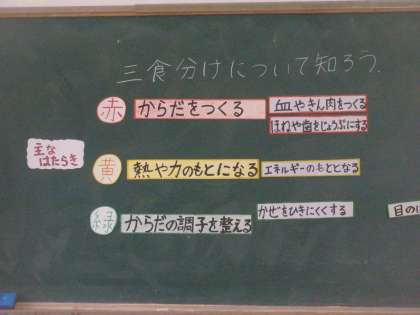 三食分けについて知ろう.
赤 からだをつくる 血やきん肉をつくる
ほねや歯をじょうぶにする
主な
はたらき
黄 熱や力のもとになる エネルギーのもととなる
緑 からだの調子を整える かぜをひきにくくする
目の